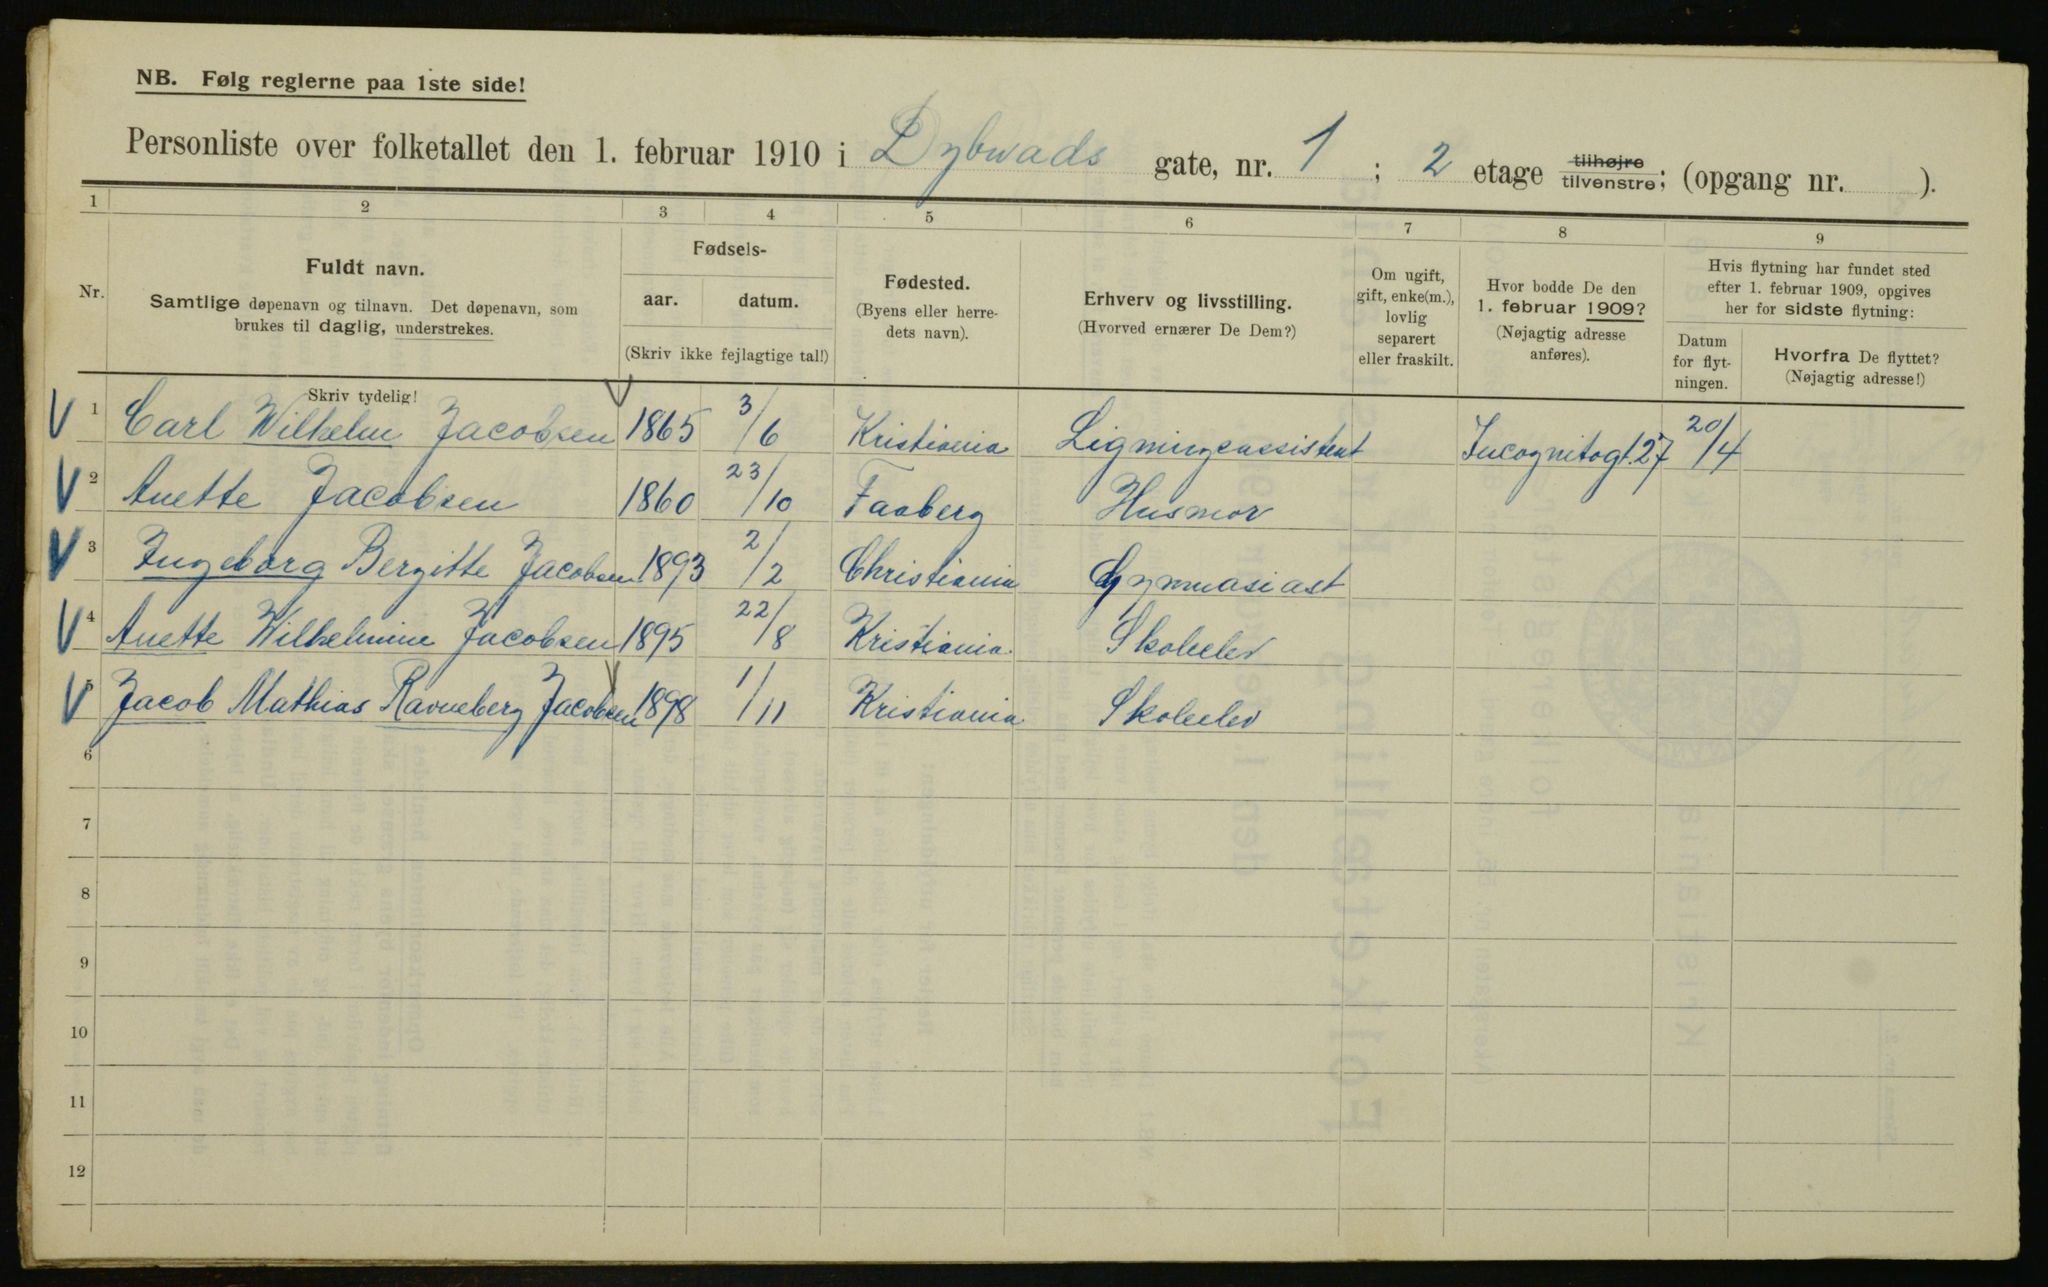 NB. Følg reglerne paa 1ste side!
Personliste over folketallet den 1. februar 1910 i Dybwads gate, nr. 1 ; 2 etage tilhøjre tilvenstre; (opgang nr. ).
1 2 3 4 5 6 7 8 9
Nr.
Fuldt navn.
Samtlige døpenavn og tilnavn. Det døpenavn, som
brukes til daglig, understrekes.
Skriv tydelig!
Fødsels-
aar. datum.
(Skriv ikke fejlagtige tal!)
Fødested.
(Byens eller herre-
dets navn).
Erhverv og livsstilling.
(Hvorved ernærer De Dem?)
Om ugift,
gift, enke(m.),
lovlig
separert
eller fraskilt.
Hvor bodde De den
1. februar 1909?
(Nøjagtig adresse
anføres).
Hvis flytning har fundet sted
efter 1. februar 1909, opgives
her for sidste flytning:
Datum
for flyt-
ningen.
Hvorfra De flyttet?
(Nøjagtig adresse!)
1 Carl Wilhelm Jacobsen 1865 3/6 Kristiania Ligningsassistent Incognitogt. 27 20/4
2 Anette Jacobsen 1860 23/10 Faaberg Husmor
3 Ingeborg Bergitte Jacobsen 1893 2/2 Christiania Gymnasiast
4 Anette Wilhelmine Jacobsen 1895 22/8 Kristiania Skoleelev
5 Jacob Mathias Ravneberg Jacobsen 1898 1/11 Kristiania Skoleelev
6
7
8
9
10
11
12